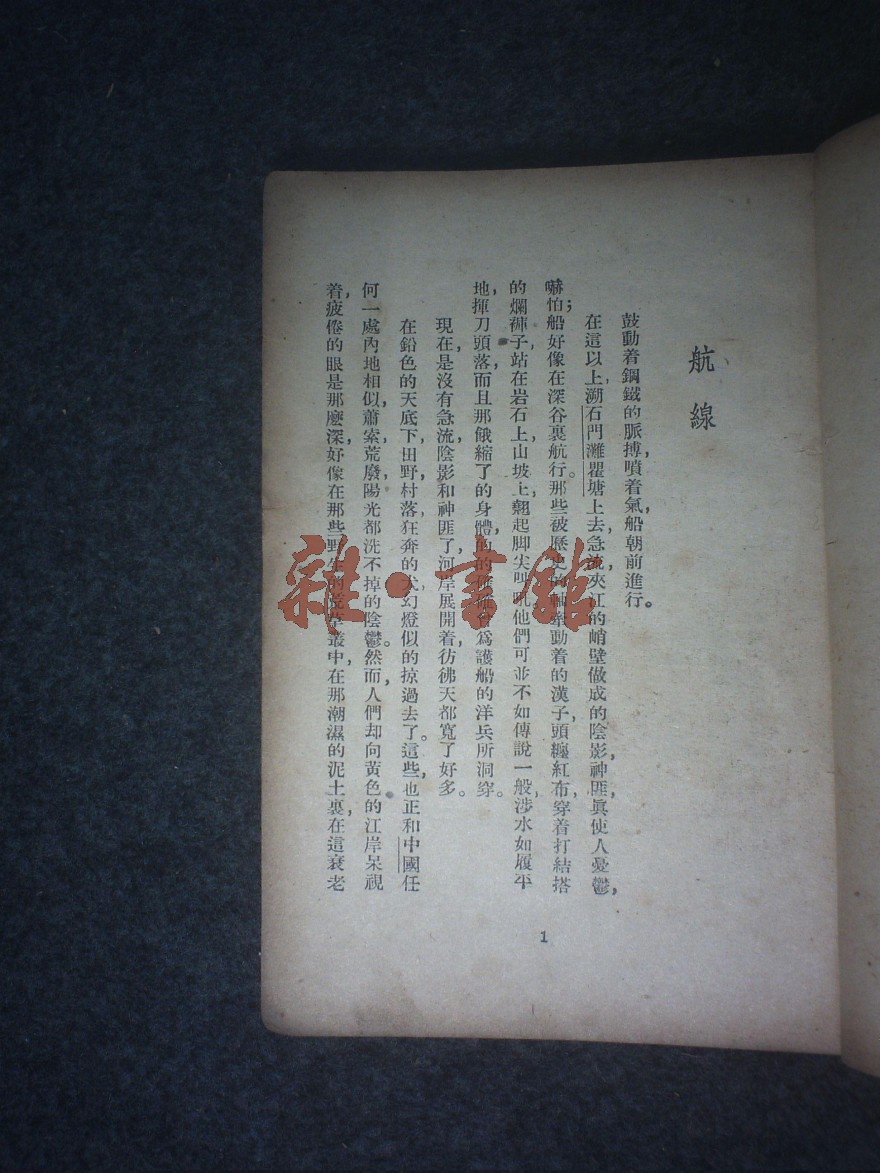 航線
鼓動着鋼鐵的脈搏，噴着氣，船朝前進行。
在這以上，溯石門灘瞿塘上去，急流，夾江的峭壁做成的陰影，神匪，眞使人憂鬱，
嚇怕；船好像在深谷裏航行。那些被歷史的輪牽動着的漢子，頭纏紅布，穿着打結搭
的爛褲子，站在岩石上，山坡上，翹起脚尖叫吼，他們可並不如傳說一般，涉水如履平
地，揮刀頭落，而且那餓縮了的身體的為護船的洋兵所洞穿。
現在，是沒有急流，陰影和神匪了，河岸展開着，彷彿天都寬了好多。
在鉛色的天底下，田野，村落，狂奔的犬，幻燈似的掠過去了。這些，也正和中國任
何一處內地相似，蕭索，荒廢，陽光都洗不掉的陰鬱。然而，人們却向黃色的江岸呆視
着，疲倦的眼是那麽深，好像在那些野生的荒草叢中，在那潮濕的泥土裏，在這衰老
1
雜·書館